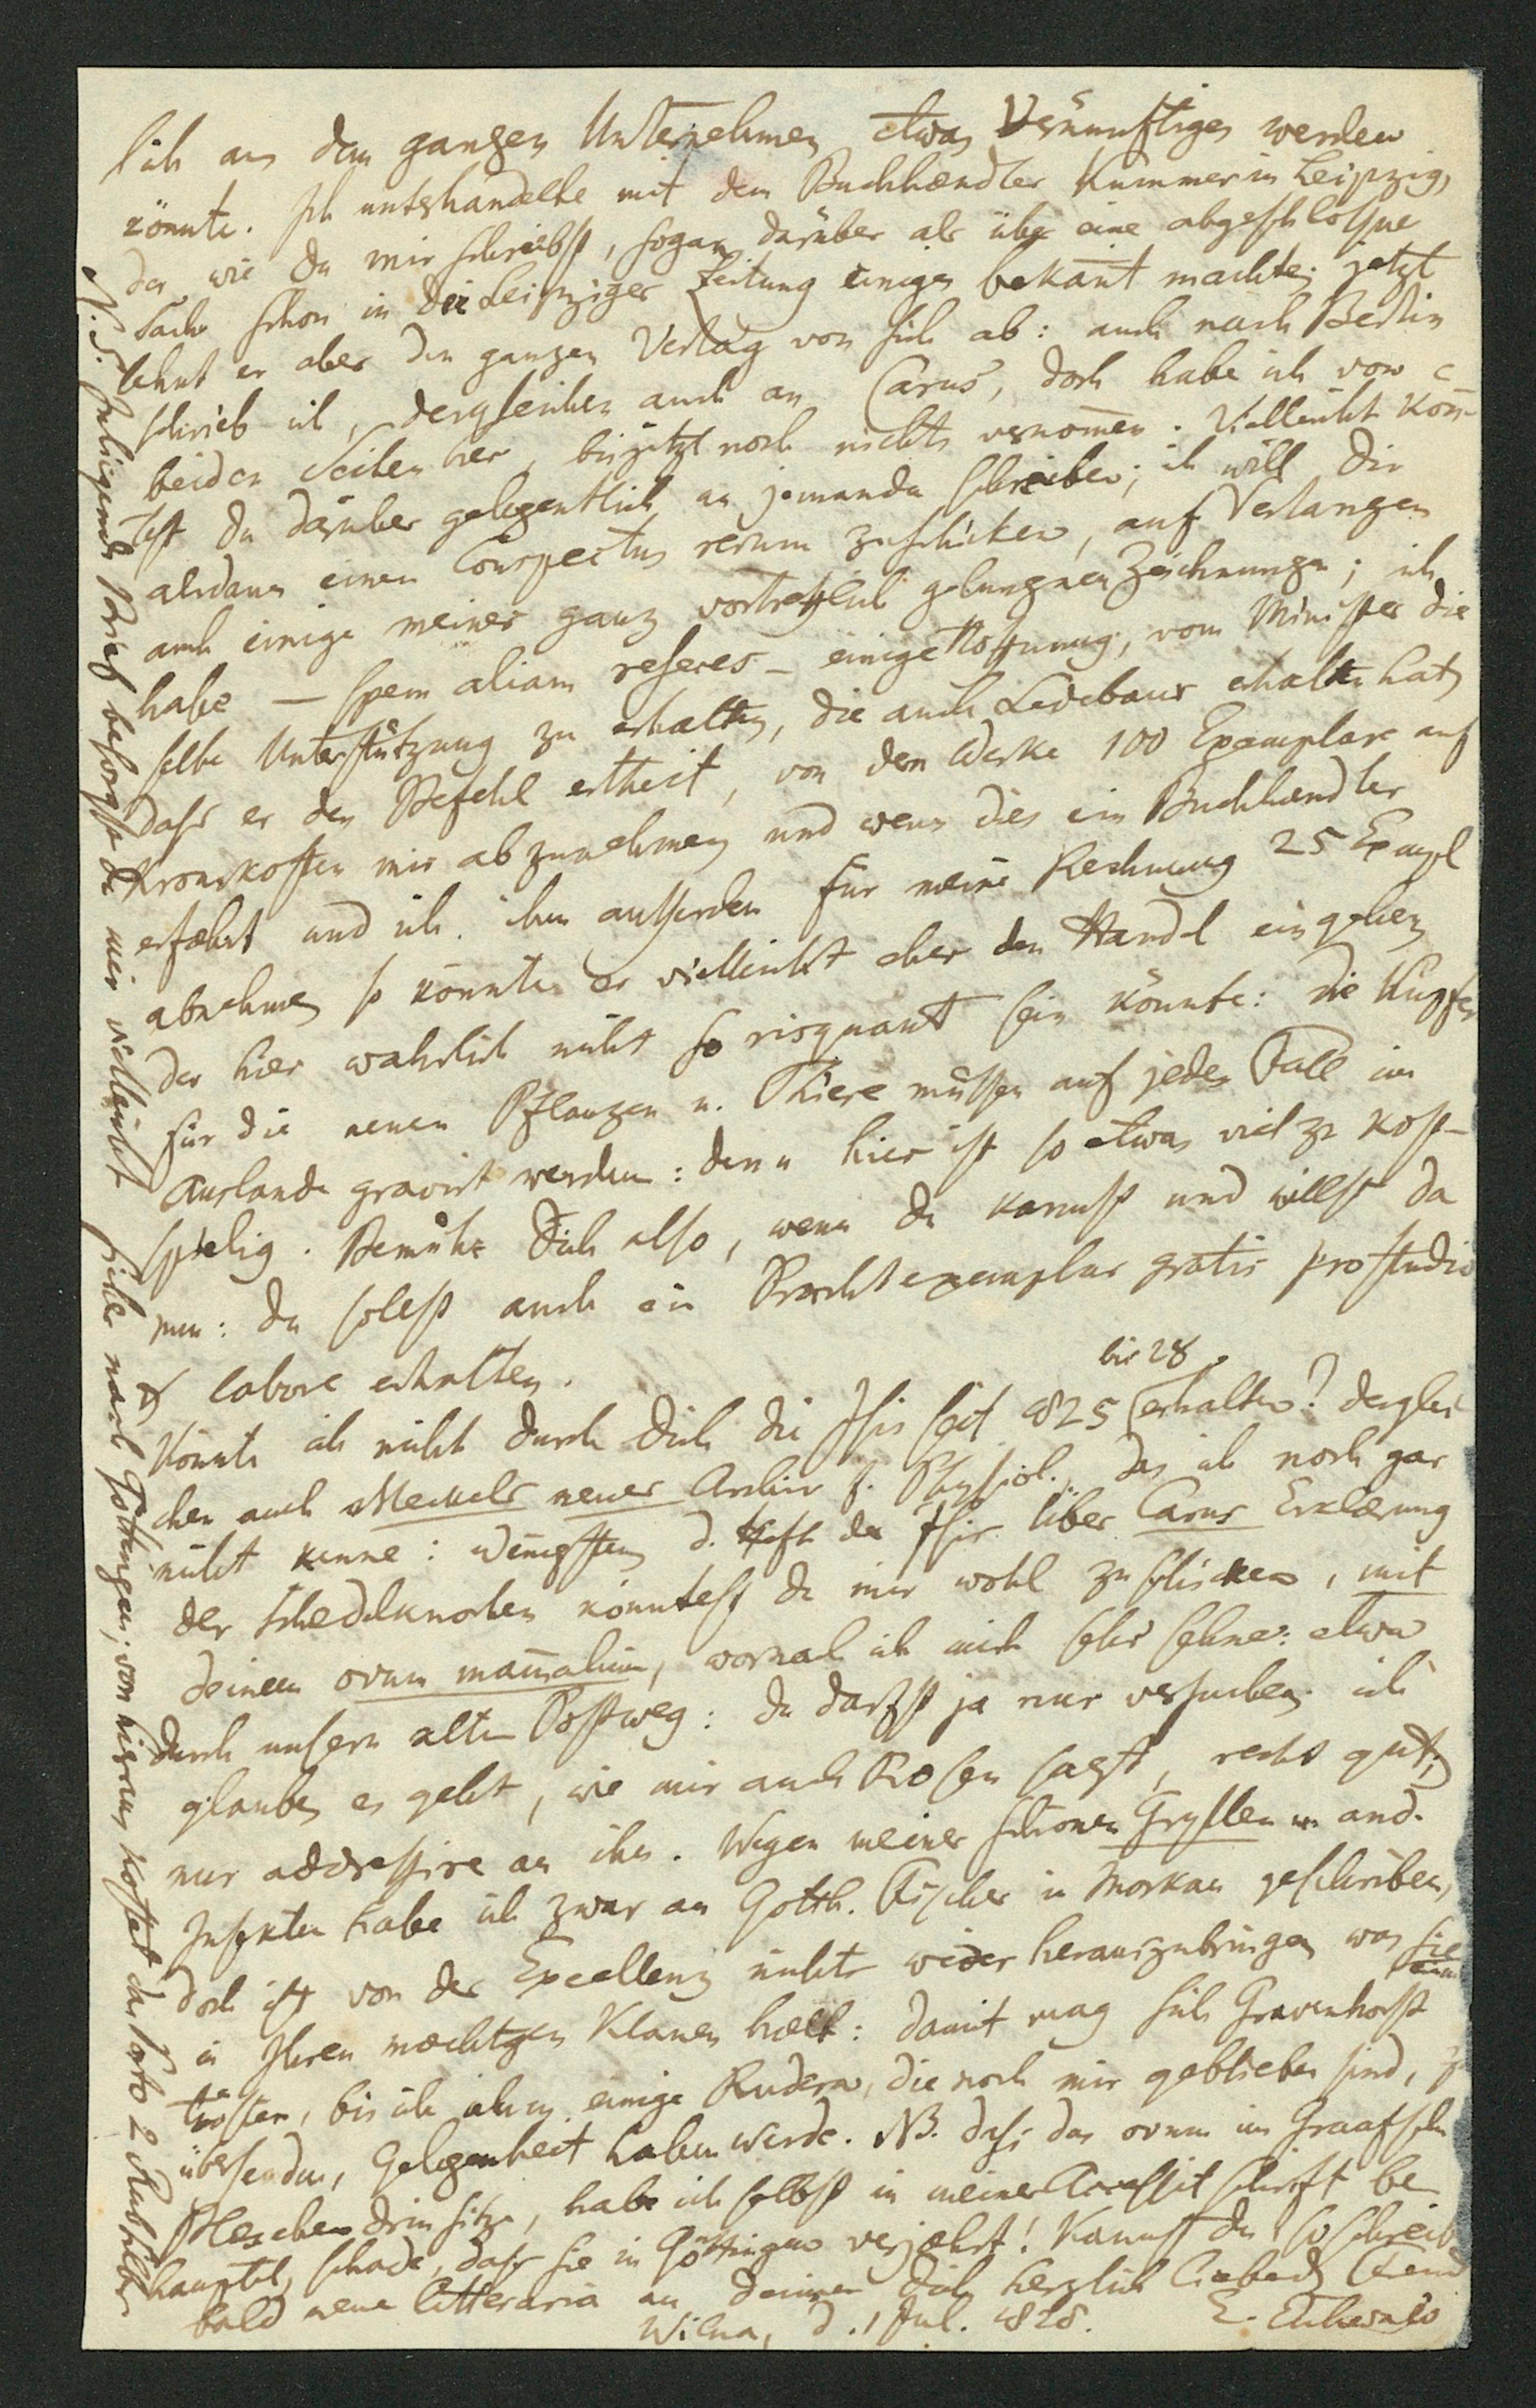 sich aus dem ganzen Unternehmen etwas Vernünftiges werden
könnte. Ich unterhandelte mit dem Buchhændler Kummer in Leipzig,
der, wie du mir schreibst, sogar darüber als über eine abgeschlossne
Sache schon in der Leipziger Zeitung einiges bekañt machte; jetzt
lehnt er aber den ganzen Verlag von sich ab: auch nach Berlin
schrieb ich, dergleichen auch an Carus, doch habe ich von
beiden Seiten her, bis jetzt noch nichts vernom̄en. Vielleicht kön-
test du darüber gelegentlich an jemanden schreiben; ich will dir
alsdann einen Conspectus rerum zuschicken, auf Verlangen
auch einige meiner ganz vortrefflich gelungnen Zeichnungen; ich
habe – spem aliam referes – einige Hoffnung, vom Minister die
selbe Unterstützung zu erhalten, die auch Ledebour erhalten hat,
dass er den Befehl ertheilt, von dem Werke 100 Exemplare auf
Kronskosten mir abzunehmen, und wenn dies ein Buchhændler
erfæhrt und ich ihm ausserdem für meine Rechnung 25 Exempl
abnehme, so könnte er vielleicht eher den Handel eingehen,
der hier wahrlich nicht so risquant sein könnte: die Kupfer
für die neuen Pflanzen u. Thiere müssen auf jeden Fall im
Auslande gravirt werden: denn hier ist so etwas viel zu kost-
spielig. Bemühe dich also, wenn du kannst und willst da
rum: du sollst auch ein Prachtexemplar gratis pro studio
et labore erhalten.
Könnte ich nicht durch dich die Isis seit 825 bis 28 erhalten? derglei
chen auch Meckels neues Archiv f. Physiol., das ich noch gar
nicht kenne: wenigstens d. Heft der Isis über Carus Erklærung
der Schedelknochen könntest du mir wohl zuschicken, mit
deinem ovum mam̄alium, wornach ich mich sehr sehne: etwa
durch unsern alten Postweg: du darfst ja nur versuchen; ich
glaube, es geht, wie mir auch Rosen sagt, recht gut;
nur addressire an ihn. Wegen meiner schönen Gryllen u. and.
Insekten habe ich zwar an Gotth. Fischer in Moskau geschrieben,
doch ist von der Excellenz nichts wider herauszubringen, was sie
in Ihren mæchtgen Klauen hælt: damit mag sich Gravenhorst
trösten, bis ich ihm einige Rudera, die noch mir geblieben sind, z
übersenden, Gelegenheit haben werde. NB. dass das ovum im Graafschen
Blæschen drin sitze, habe ich selbst in meiner Preisschrift be
hauptet, schade, dass sie in Göttingen verjæhrt! Kannst du so schreib
bald neue litteraria an deinen dich herzlich liebend. Freund
Wilna, d. 1 Jul. 828. E. Eichwald
N.S. Inliegenden Brief besorgst du mir vielleicht sicher nach Göttingen; von hieraus kostet das Porto 2 Rub. Silber